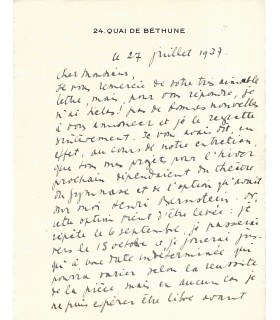 24. QUAI DE BÉTHUNE
le 27 juillet 1937.
Cher Monsieur,
Je vous remercie de votre très aimable
lettre, mais, pour vous répondre, je
n'ai hélas! pas de bonnes nouvelles
à vous annoncer et je le regrette
sincèrement. Je vous avais dit, en
effet, au cours de notre entretien,
que tous mes projets pour l'hiver
prochain dépendaient du théâtre
du Gymnase et de l'option qu'avait
sur moi Henri Bernstein. Or,
cette option vient d'être levée : je
répète le 6 septembre, je passerai
vers le 15 octobre et je jouerai jus-
qu'à une date indéterminée qui
pourra varier selon la réussite
de la pièce, mais en aucun cas je
ne puis espérer être libre avant